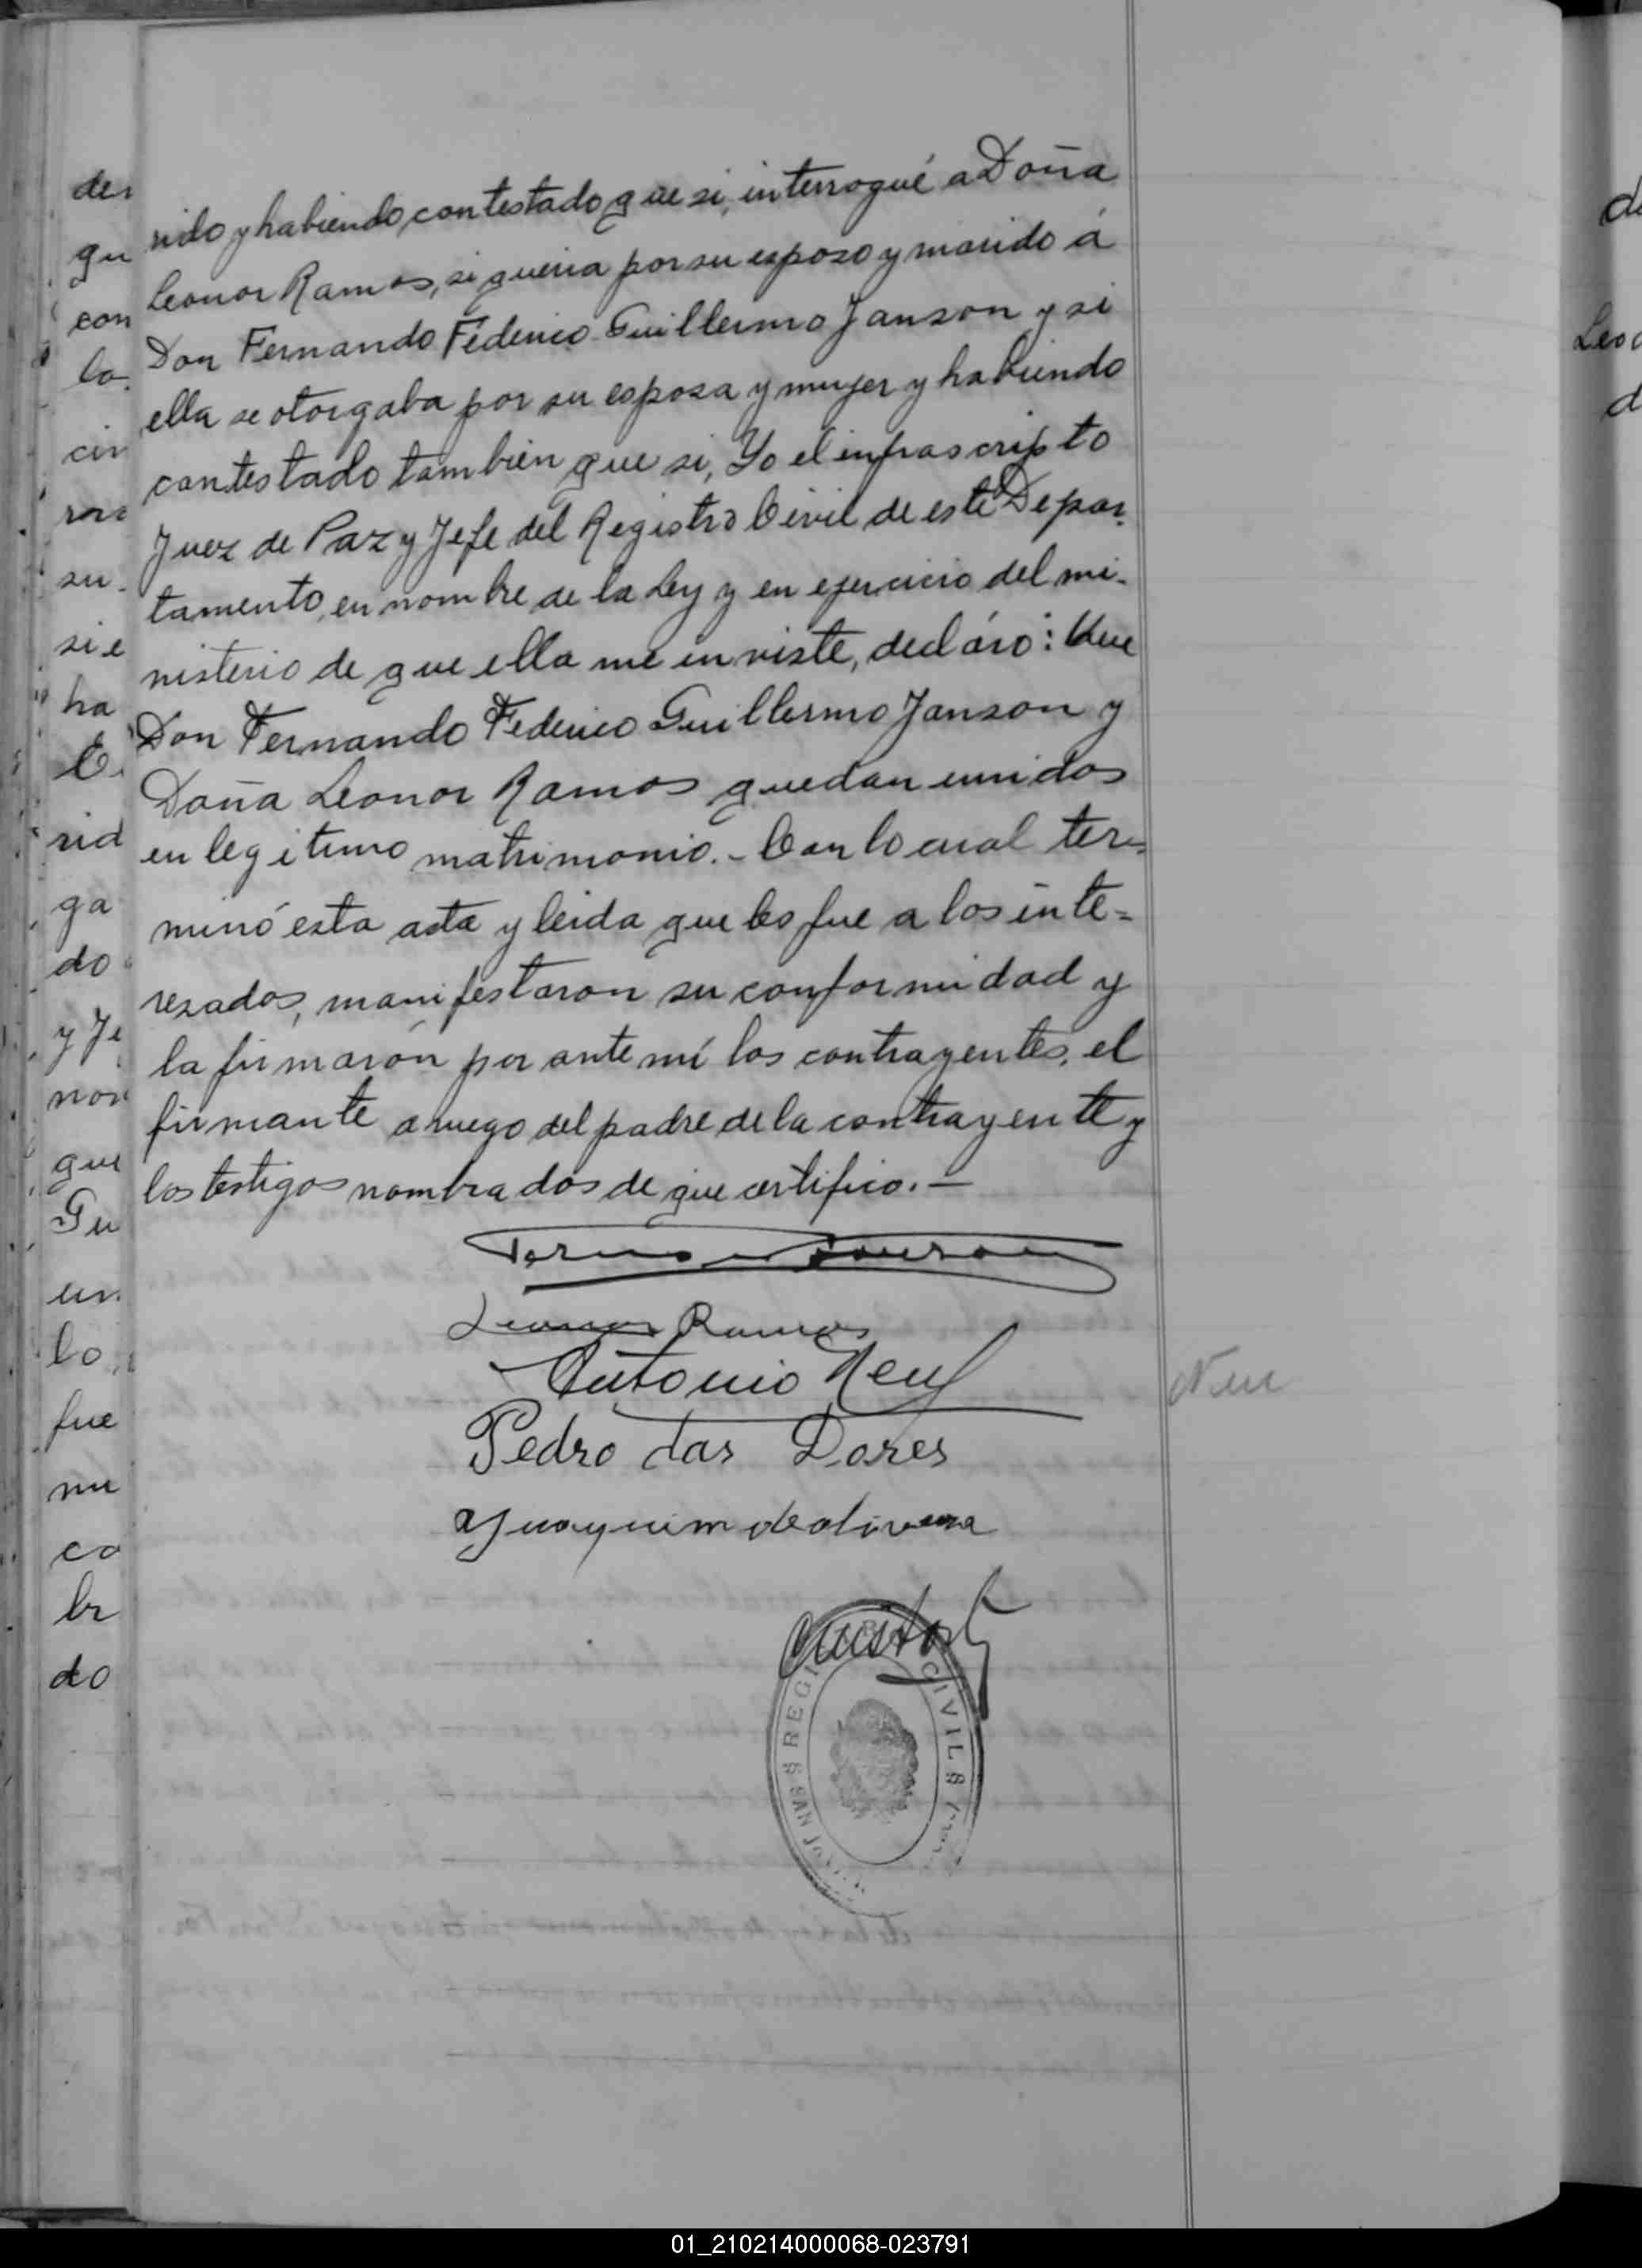 rido y habiendo contestado que si, interrogué a Doña
Leonor Ramos, si queria por su esposo y marido á
Don Fernando Federico Guillermo Janson y si
ella se otorgaba por su esposa y mujer y habiendo
contestado tambien que si, Yo el infrascripto
Juez de Paz y Jefe del Registro Civil de este Depar-
tamento, en nombre de la Ley y en ejercicio del mi-
nisterio de que ella me inviste, decláro: Que
Don Fernando Federico Guillermo Janson y
Doña Leonor Ramos quedan unidos
en legitimo matrimonio.- Con lo cual ter=
minó esta acta y leida que les fue a los inte=
resados, manifestaron su conformidad y
la firmaron por ante mi los contrayentes, el
firmante a ruego del padre de la contrayente y
los testigos nombrados de que certifico.—
Janson
Leonor Ramos
Antonio
Pedro das Dores
Juaquim de olivera
REGI CIVIL
SAN
der
qu
con
lo
cin
su
sie
ha
C
rid
ga
do
y Je
non
que
Gu
un
lo
fue
mi
co
br
do
d
Leo
d
01_210214000068-023791